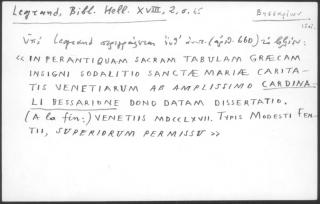 Legrand, Bibl. Hell. XVIII, 2, σ. 65
Βησσαρίων
ὑπὸ Legrand περιγράφεται ὑπ' ἀριθ. (ἀριθ. 660) τὸ ἑξῆς:
«IN PERANTIQUAM SACRAM TABULAM GRÆCAM
INSIGNI SODALITIO SANCTÆ MARIÆ CARITA-
TIS VENETIARUM AB AMPLISSIMO CARDINA-
LI BESSARIONE DONO DATAM DISSERTATIO.
(A la fin:) VENETIIS MDCCLXVII. TYPIS MODESTI FEN-
TII, SUPERIORUM PERMISSU»